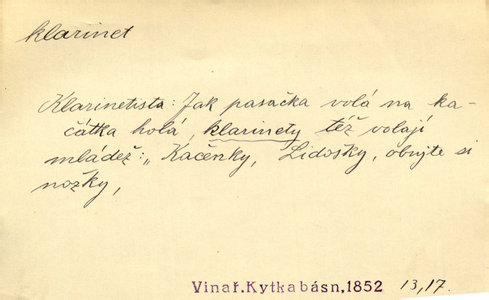 klarinet
Klarinetista: Jak pasačka volá na ka-
čátka holá, klarinety též volají
mládež: „Kačenky, Lidošky, obujte si
nožky,
Vinař.Kytkabásn,1852 13,17.